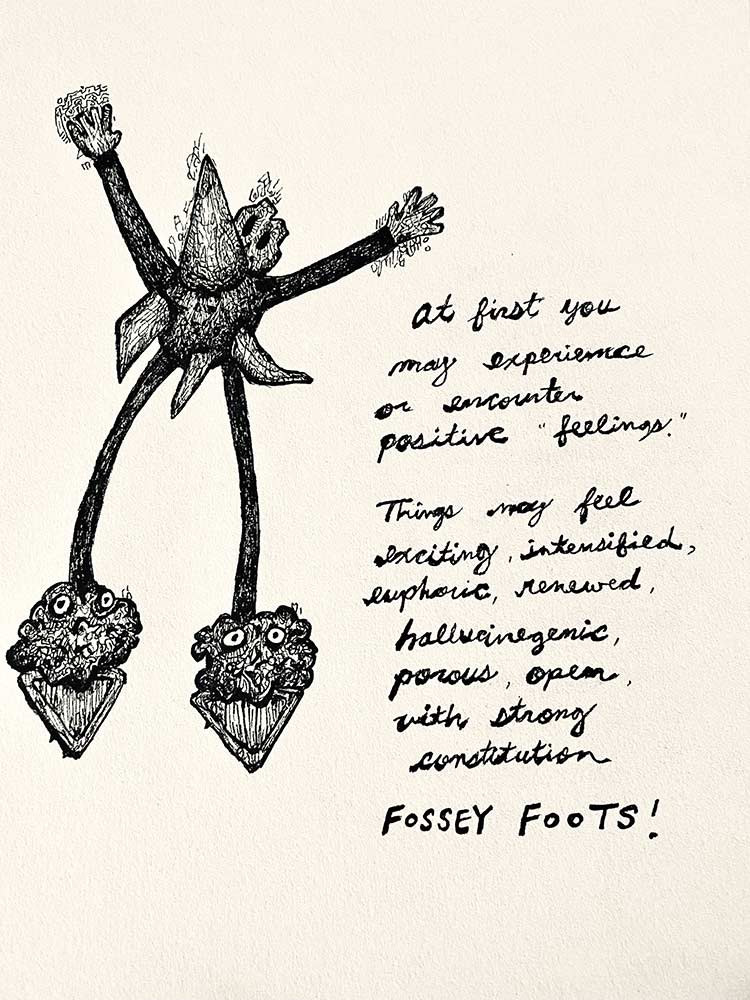 At first you
may experience
or encounter
positive "feelings."
Things may feel
exciting, intensified,
euphoric, renewed,
hallucinegenic,
porous, open,
with strong
constitution
FOSSEY FOOTS!